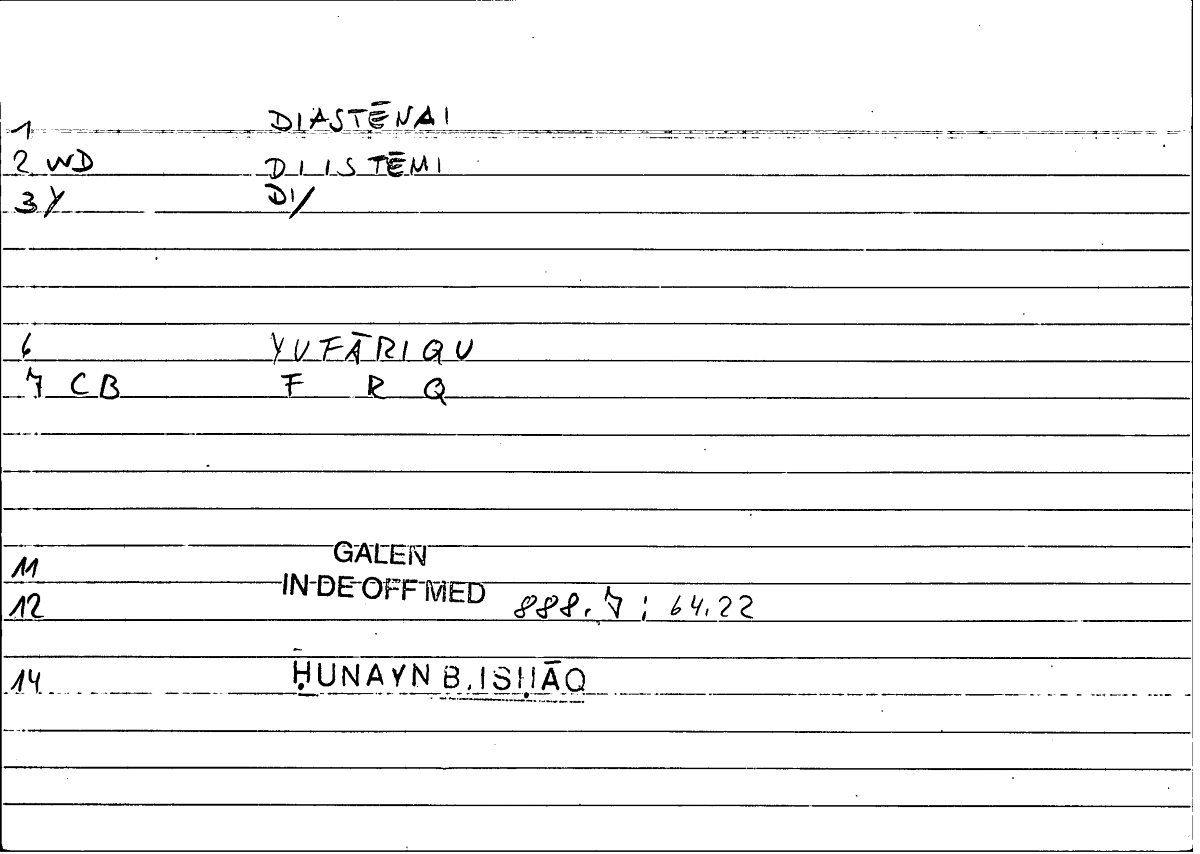 1 DIASTĒNAI
2 WD DIISTĒMI
3 Y DI/
6 YUFĀRIQU
7 CB F R Q
11 GALEN
12 IN DE OFF MED 888.7 ; 64.22
14 ḤUNAYN B. ISḤĀQ